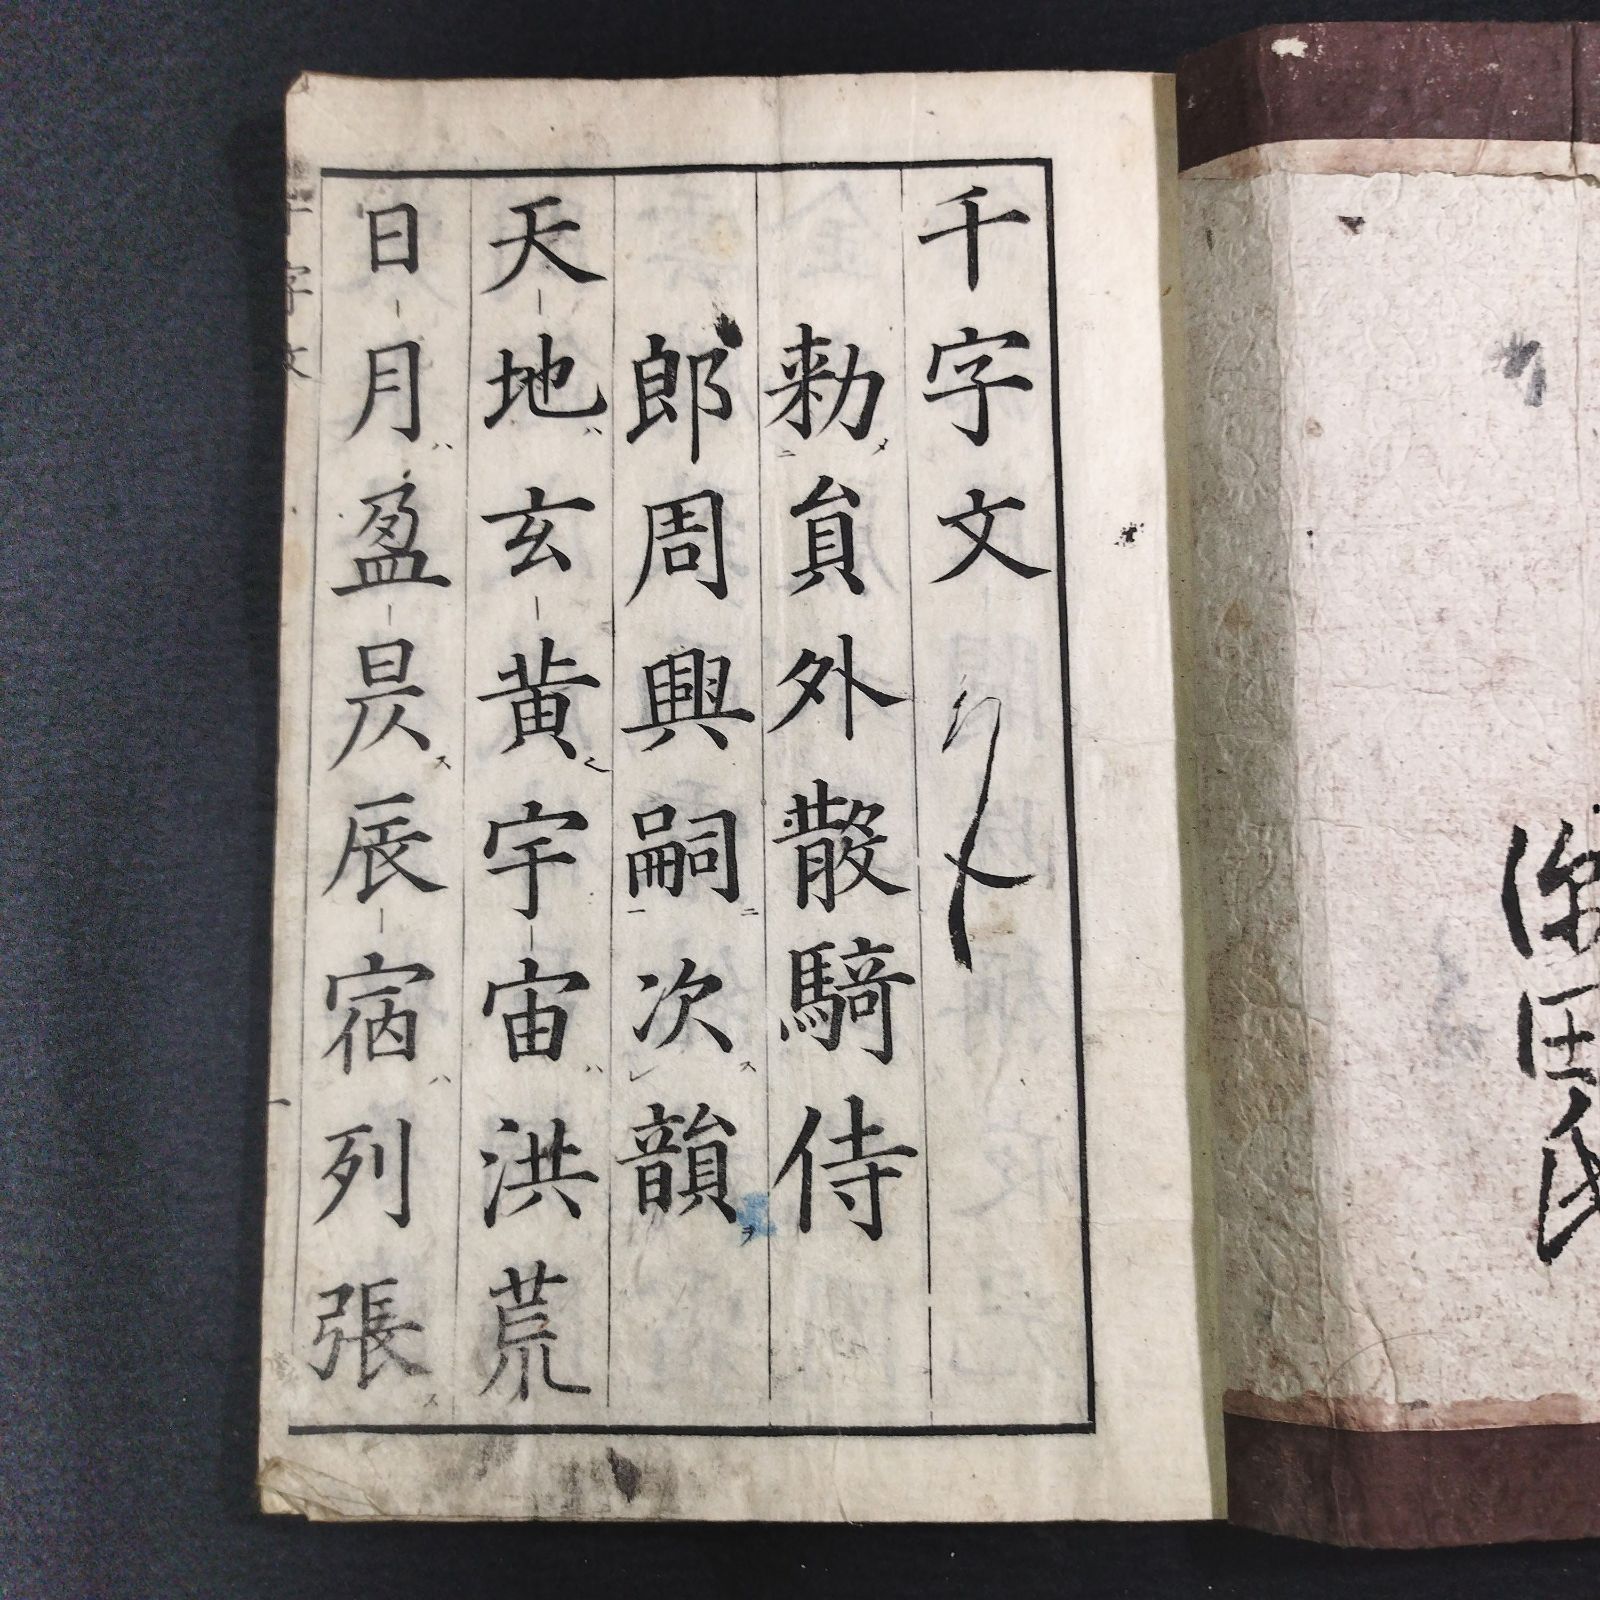 千字文
勅員外散騎侍
郎周興嗣次韻
天地玄黄宇宙洪荒
日月盈昃辰宿列張
千字文
一